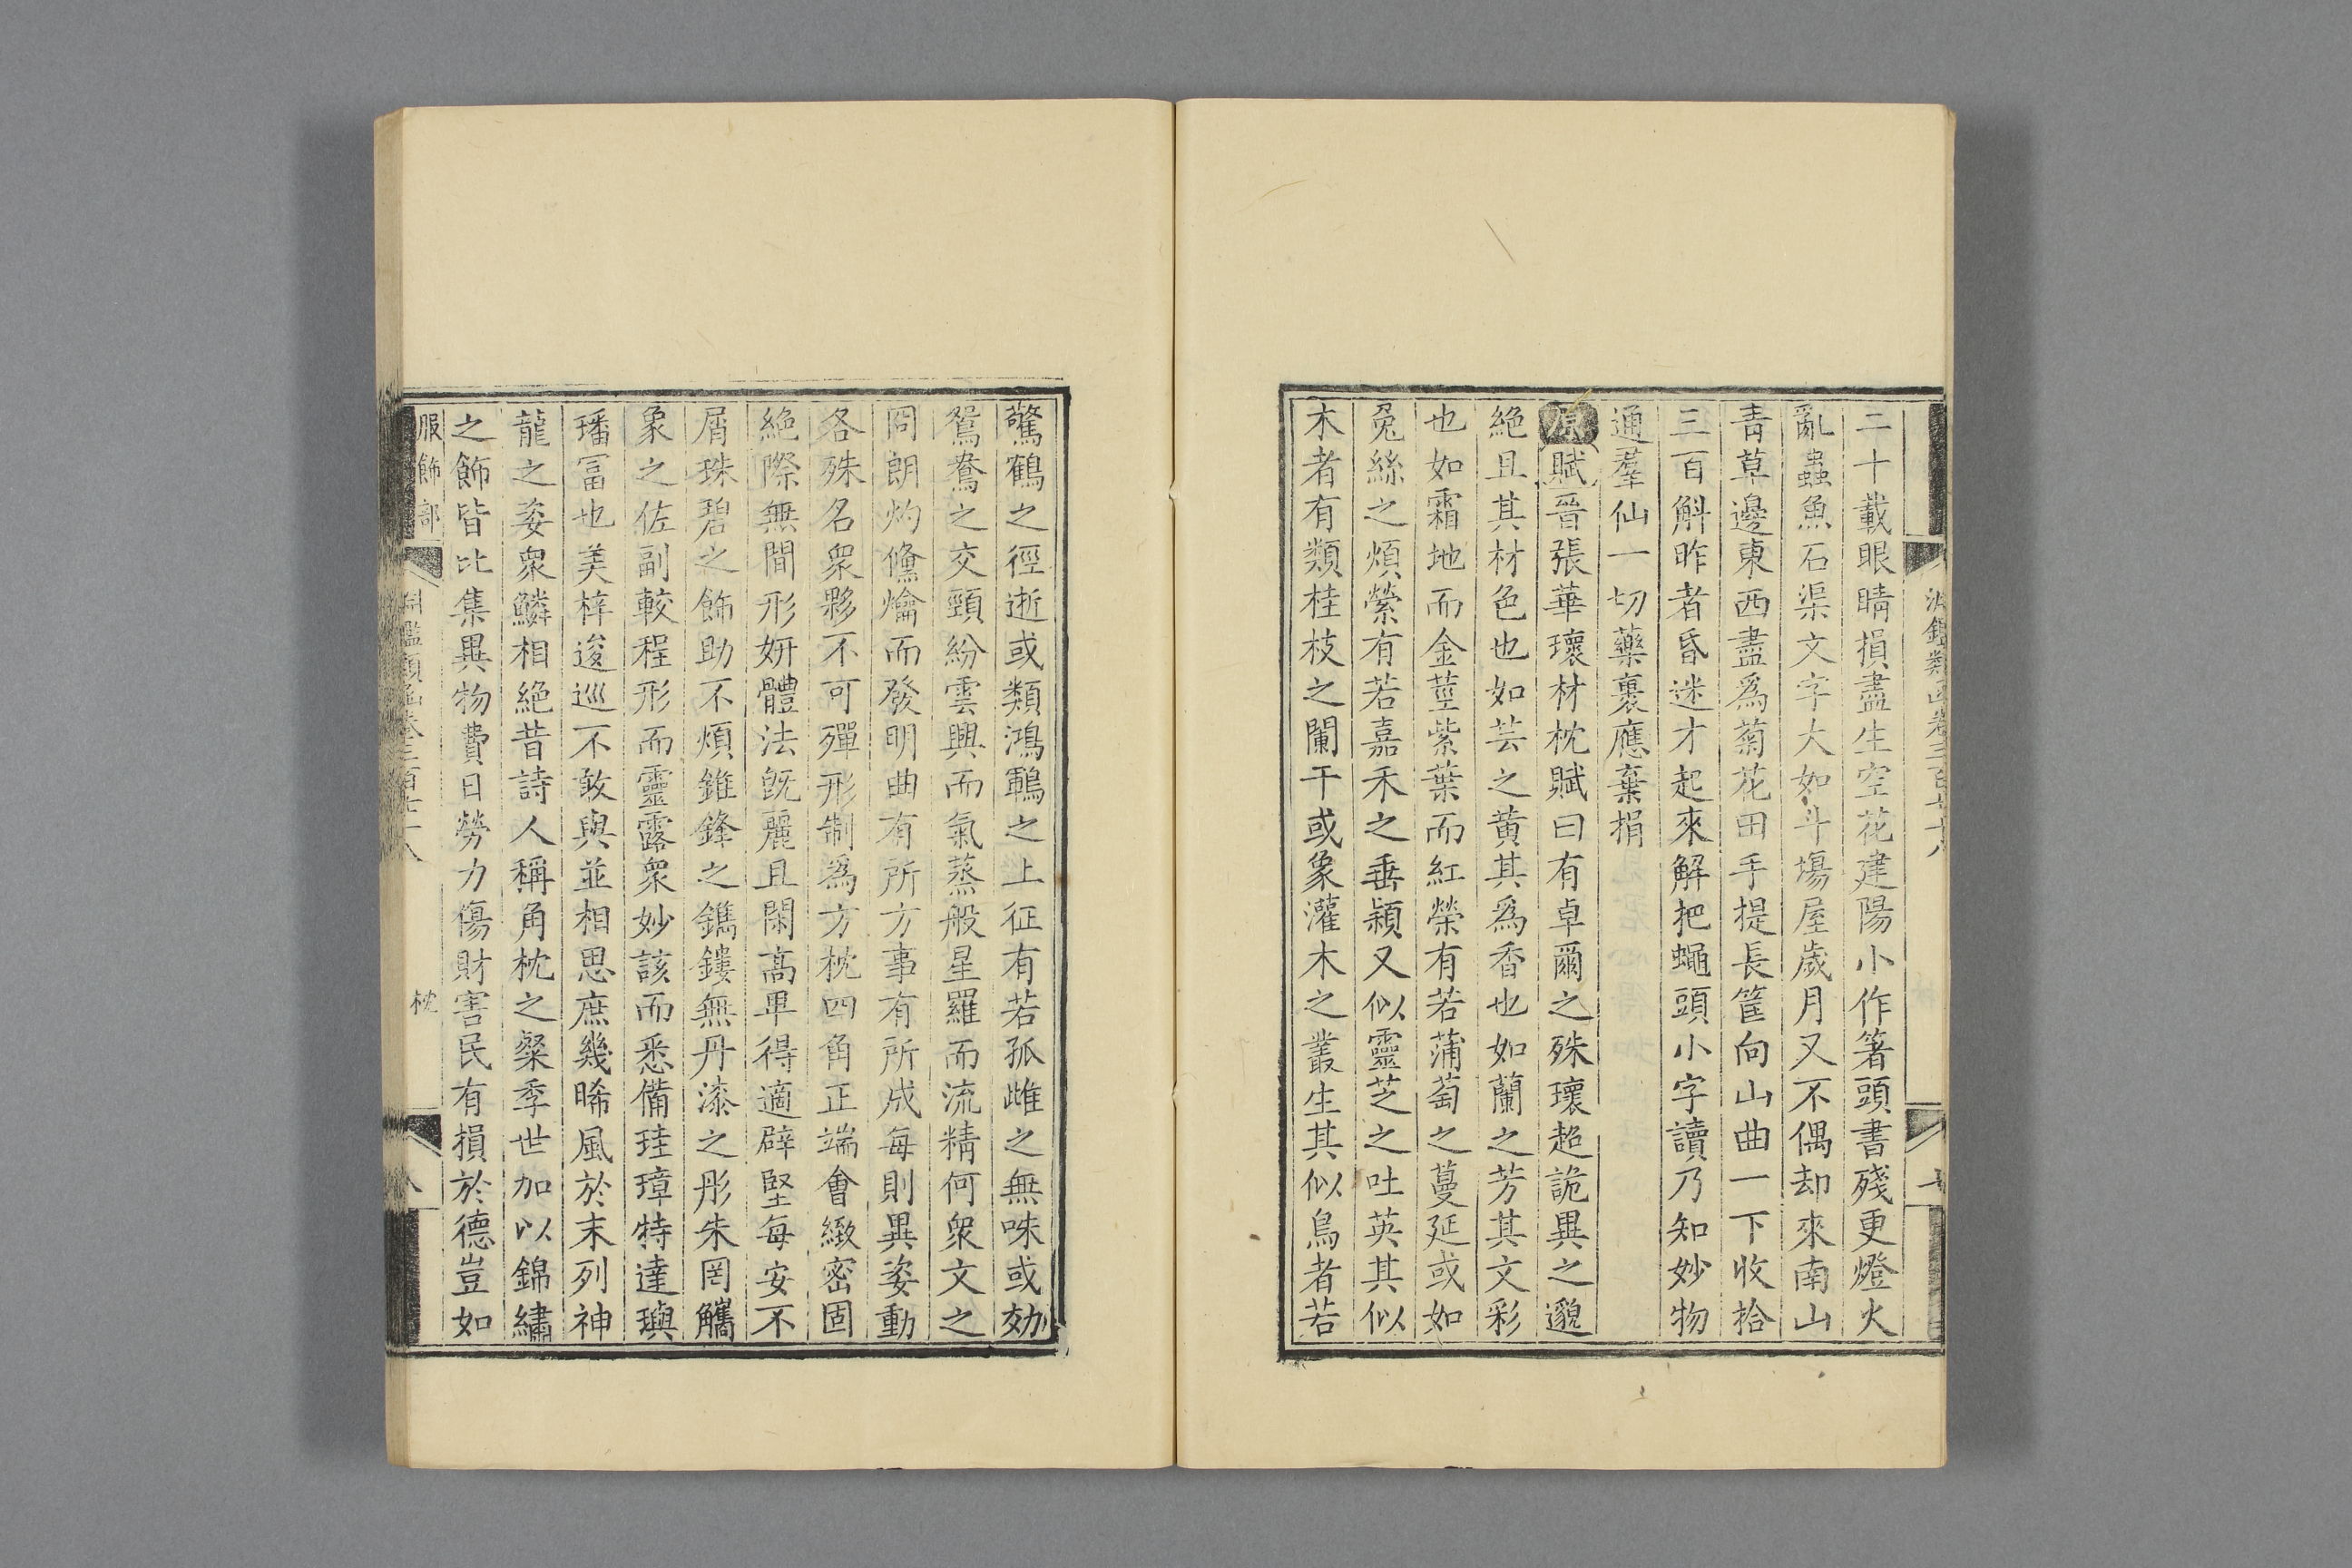 淵鑑類函卷三百七十八
二十載眼睛損盡生空花建陽小作箸頭書殘更燈火
亂蟲魚石渠文字大如斗塲屋歲月又不偶却來南山
靑草邊東西盡爲菊花田手提長筐向山曲一下收拾
三百斛昨者昏迷才起來解把蠅頭小字讀乃知妙物
通羣仙一切藥裹應棄捐
原賦晉張華瓌材枕賦曰有卓爾之殊瓌超詭異之邈
絶且其材色也如芸之黄其爲香也如蘭之芳其文彩
也如霜地而金莖紫葉而紅榮有若蒲萄之蔓延或如
兔絲之煩縈有若嘉禾之垂穎又似靈芝之吐英其似
木者有類桂枝之闌干或象灌木之叢生其似鳥者若
驚鶴之徑逝或類鴻鶤之上征有若孤雌之無咮或効
鴛鴦之交頸紛雲興而氣蒸般星羅而流精何衆文之
冏朗灼儵爚而發明曲有所方事有所成每則異姿動
各殊名衆夥不可殫形制爲方枕四角正端會緻密固
絶際無間形姸體法旣麗且閑高卑得適辟堅每安不
屑珠碧之飾助不煩錐鋒之鐫鏤無丹漆之彤朱罔觿
象之佐副較程形而靈露衆妙該而悉備珪璋特達璵
璠冨也美梓逡巡不敢與並相思庶幾晞風於末列神
龍之姿衆鱗相絶昔詩人稱角枕之粲季世加以錦繡
之飾皆比集異物費日勞力傷財害民有損於德豈如
服飾部
枕
淵鑑類函卷三百七十八
八